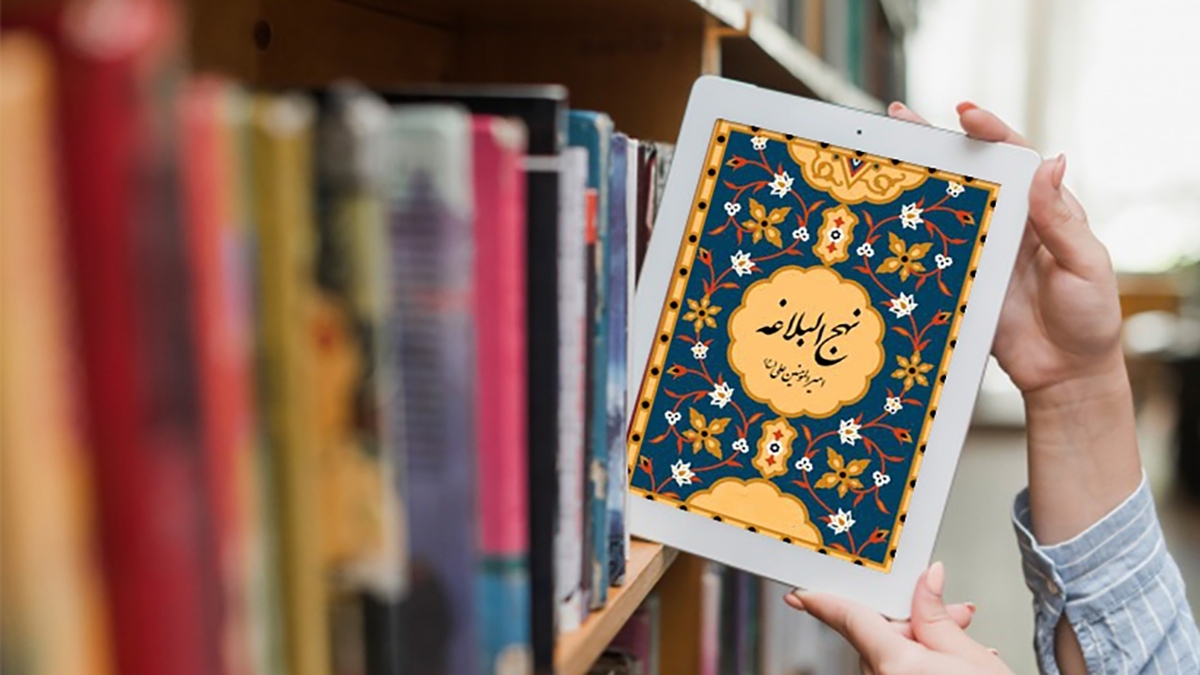 نهج البلاغه
امیرالمومنین علی (ع)